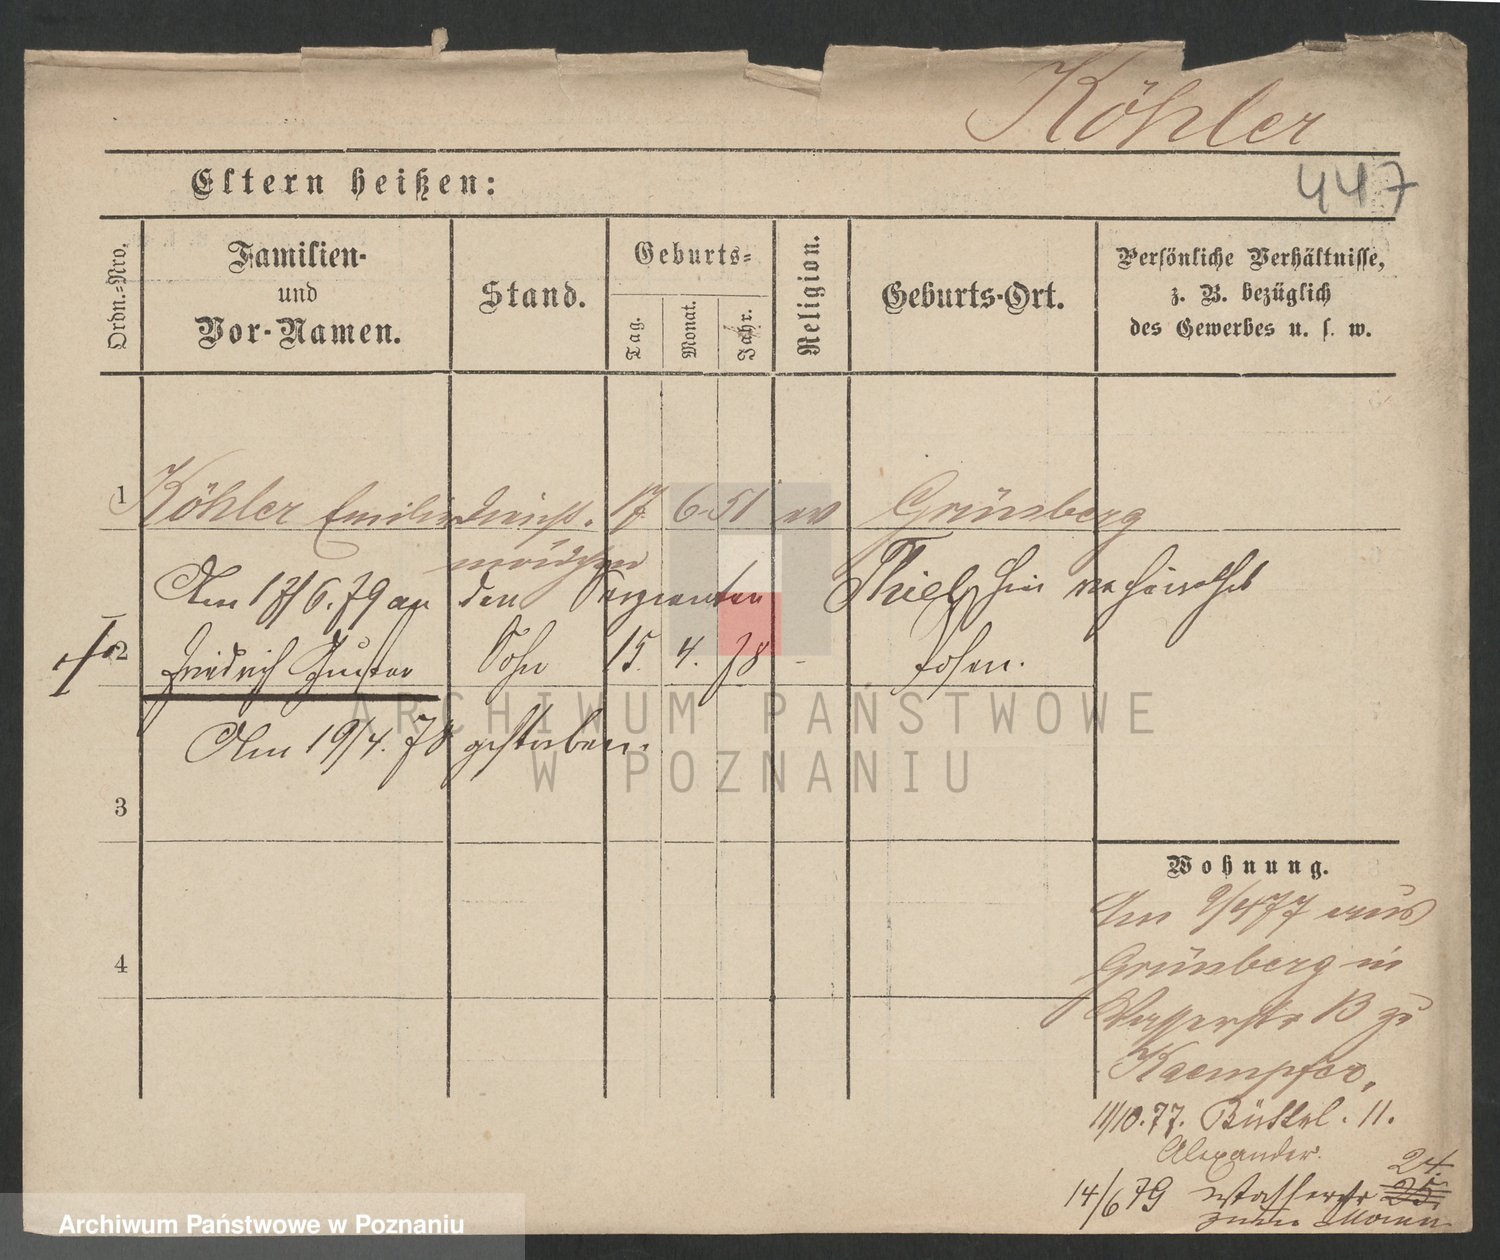 Köhler
447
Eltern heißen:
Ordn.-Nro.
Familien-
und
Vor-Namen.
Stand.
Geburts-
Tag.
Monat.
Jahr.
Religion.
Geburts-Ort.
Persönliche Verhältnisse,
z. B. bezüglich
des Gewerbes u. s. w.
1 Köhler Emilie Dienst- 17 6 51 ev Grünberg
mädchen
Am 17/6.79 an den Sergeanten Thiel hier verheirathet
2 Friedrich Gustav Sohn 15. 4. 78 - Posen.
Am 19/4. 78 gestorben.
3
4
Wohnung.
Am 9/4 77 aus
Grünberg in
Wasserstr 13 zu
Kaempfer,
11/10.77. Büttel. 11.
Alexander.
24.
14/6 79 Wasserstr 25.
zum Mann
ARCHIWUM PAŃSTWOWE
W POZNANIU
Archiwum Państwowe w Poznaniu